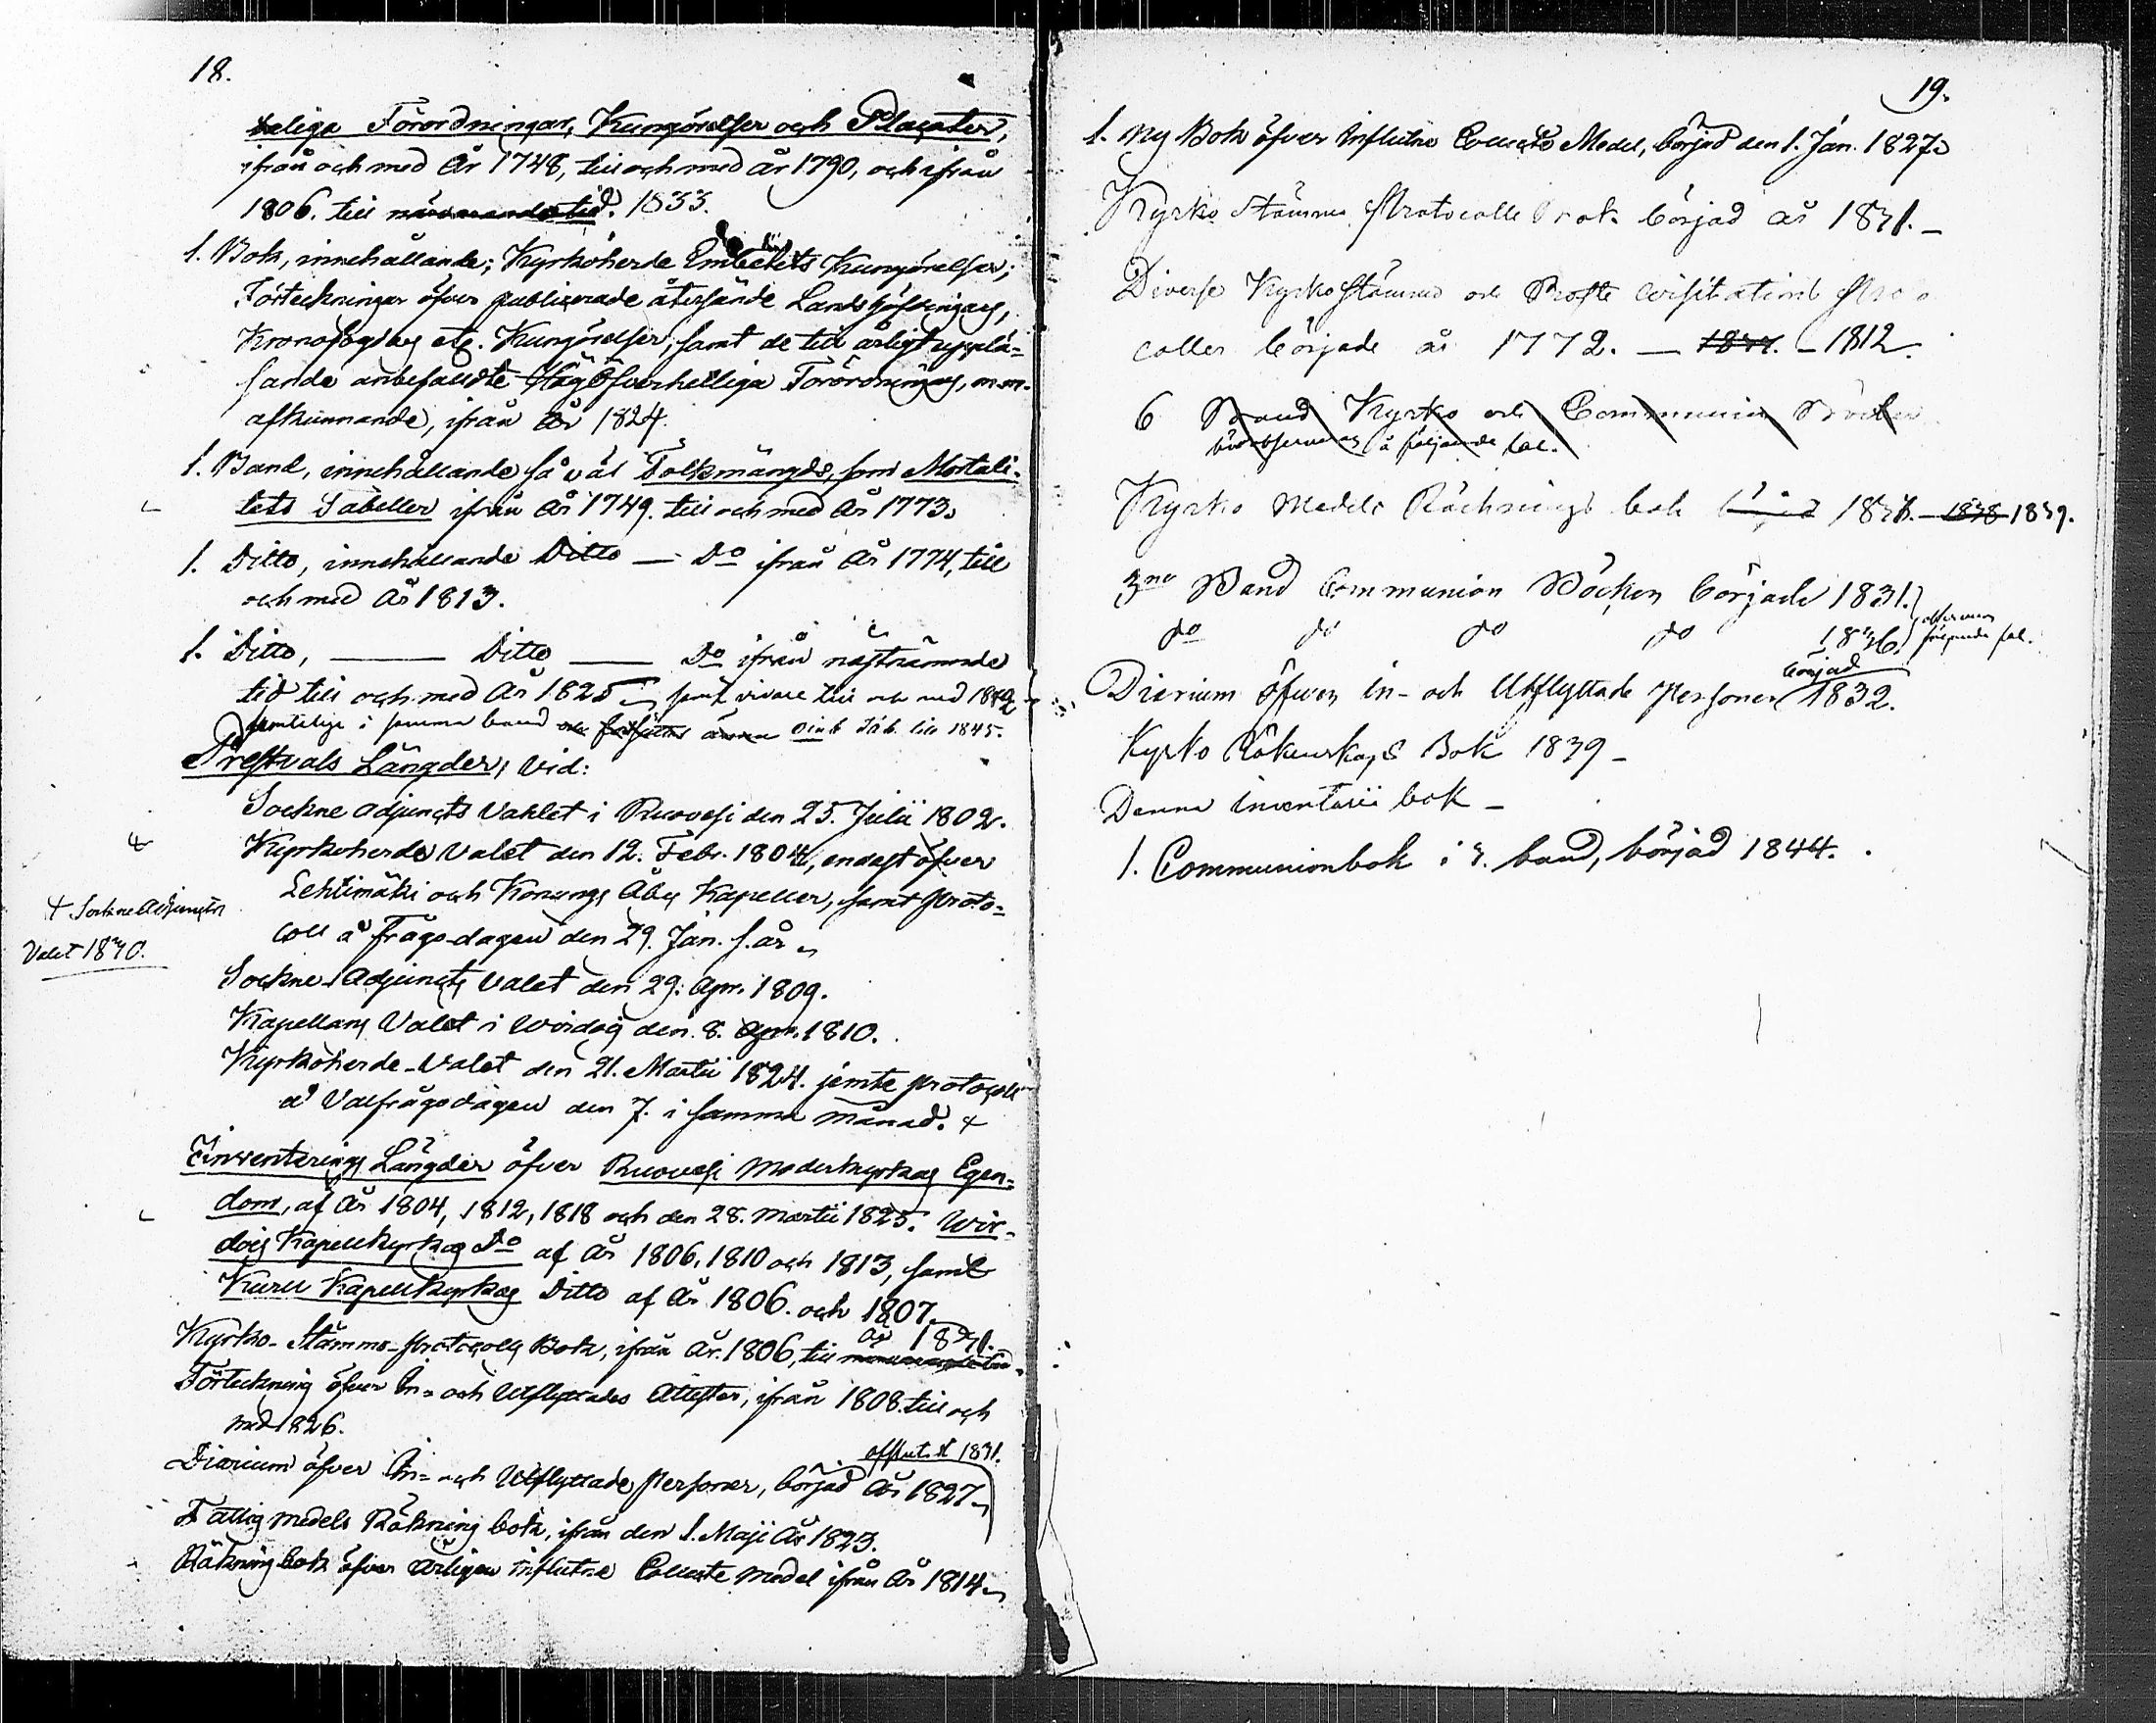 18.
teliga Förordningar, Kungörelser och Placater,
ifrån och med År 1748, till och med år 1790, och ifrån
1806. till närvarande tid. 1833.
1. Bok, innehållande; Kyrkoherde Embetets Kungörelser;
Förteckningar öfver publicerade återsände Landshöfdingens,
Kronofogdens etc. Kungörelser, samt de till årligt upplä-
sande anbefalldte Höga Öfverhetliga Förordningars, m.m.
afkunnande, ifrån År 1824.
1. Band, innehållande så väl Folkmängds, som Mortali-
tets Tabeller ifrån År 1749. till och med År 1773.
1. Ditto, innehållande Ditto — Do ifrån År 1774, till
och med År 1813.
1. Ditto, — Ditto — Do ifrån nästnämnde
tid till och med År 1825 samt vidare till och med 1840
samtelige i samma band och Tab. till 1845.
Prestvals Längder, vid:
Sockne Adjuncts Vahlet i Ruovesi den 25. Julii 1802.
Kyrkoherde Valet den 12. Febr. 1804, endast öfver
Lehtimäki och Konungs Åby Kapeller, samt Proto-
coll å Frågo-dagen den 29. Jan. s. år
+ Sockne Adjuncts
Valet 1830.
Sockne-Adjuncts Valet den 29. Apr. 1809.
Kapellans Valet i Wirdois den 8. Apr. 1810.
Kyrkoherde-Valet den 21. Martii 1824. jemte protocoll
å Valfrågodagen den 7. i samma månad. +
Inventerings Längder öfver Ruovesi Moderkyrkas Egen-
dom, af År 1804, 1812, 1818 och den 28. Martii 1825. Wir-
dois Kapellkyrkas Do af År 1806, 1810 och 1813, samt
Kuru Kapellkyrkas Ditto af År 1806. och 1807.
År 1831.
Kyrko-Stämmo-Protocolls Bok, ifrån År 1806, till närvarande tid.
Förteckning öfver In- och Utflyttades Attester, ifrån 1808. till och
med 1826.
afslut. 1831.
Diarium öfver In- och Utflyttade Personer, börjad År 1827
Fattig medels Räkning bok, ifrån den 1. Maji År 1823.
Räkning bok öfver årligen influtne Collecte medel ifrån År 1814
19.
1. Ny Bok öfver Influtne Collecte Medel, börjad den 1. Jan. 1827.
Kyrko Stämmo Protocolls Bok börjad år 1831. —
Diverse Kyrko Stämmo och Prosts visitations Proto
coller började år 1772. — 1831. — 1812.
6 Band Kyrko och Communion Böcker
å följande fol.
Kyrko Medels Räknings bok börjad 1831. — 1838 1839.
3ne Band Communion Böcker började 1831.
do do do do 1836.
följande fol.
börjad
Diarium öfver in- och Utflyttade Personer 1832.
Kyrko Räkenskaps Bok 1839 —
Denna inventarii bok —
1. Communionbok i 3. band, börjad 1844.